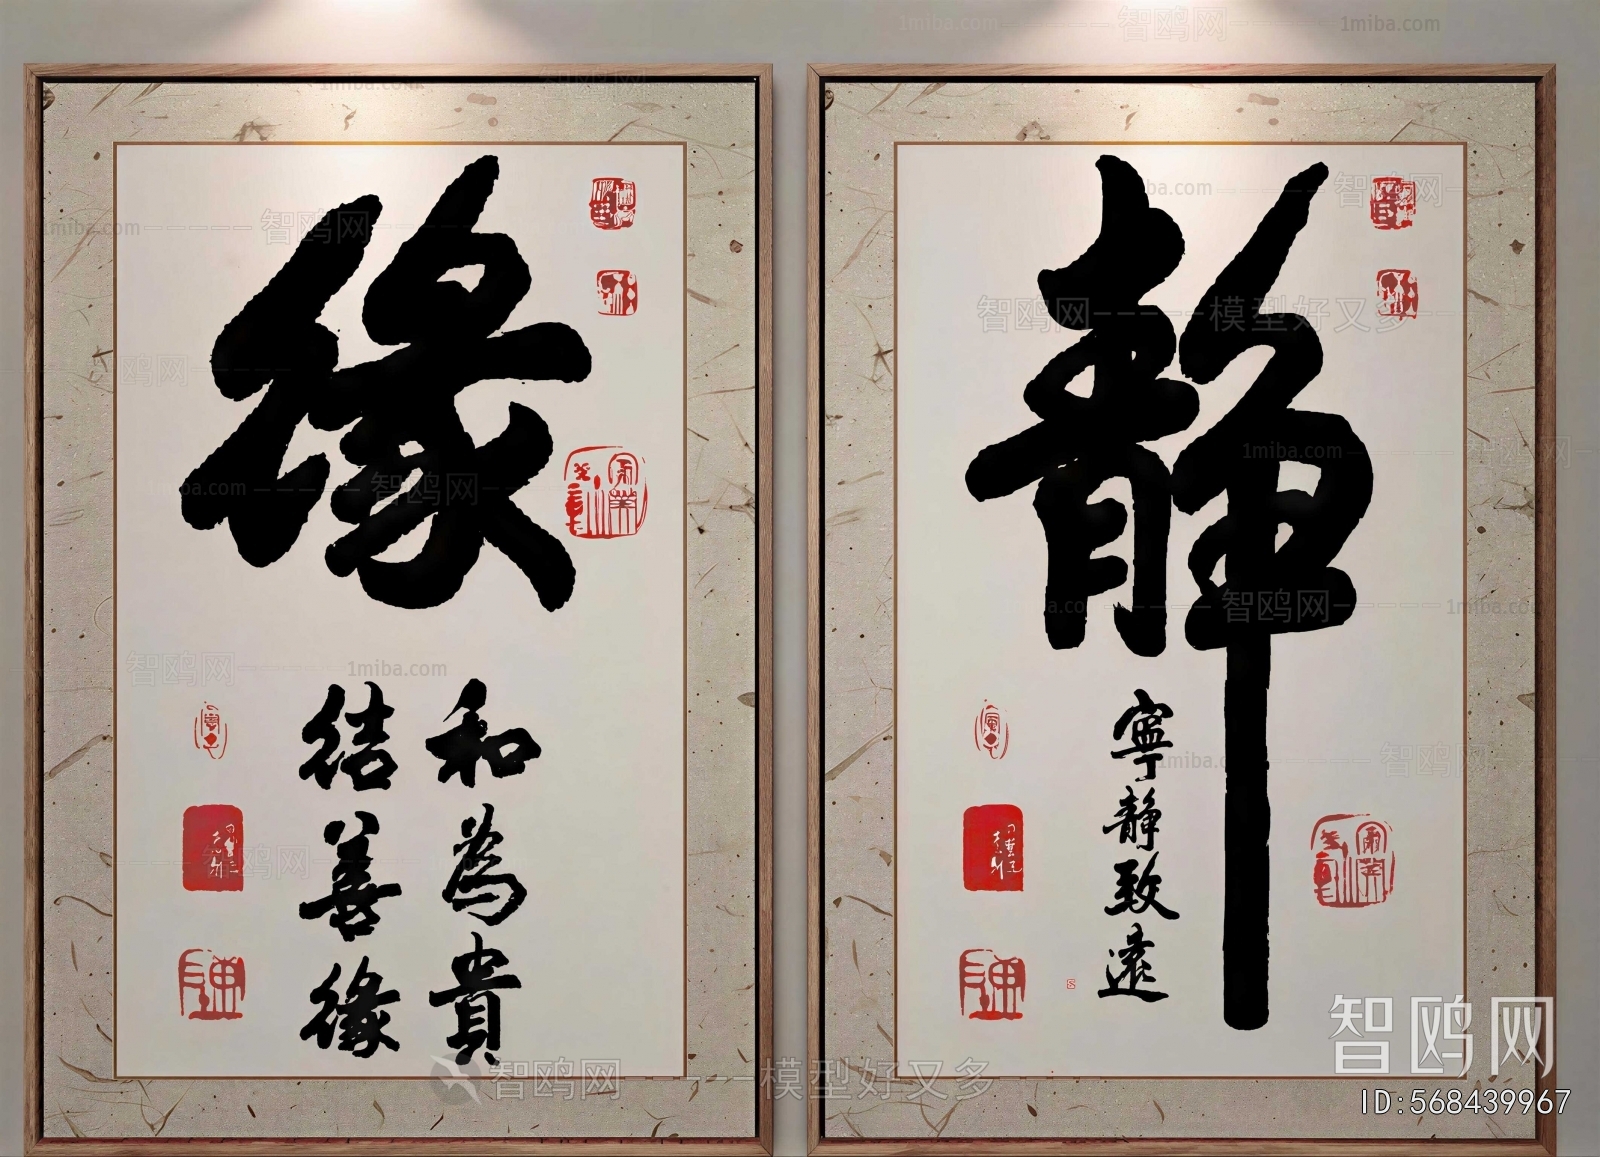 缘
和為貴
结善缘
静
寧静致遠
智鸥网
ID:568439967
1miba.com
模型好又多